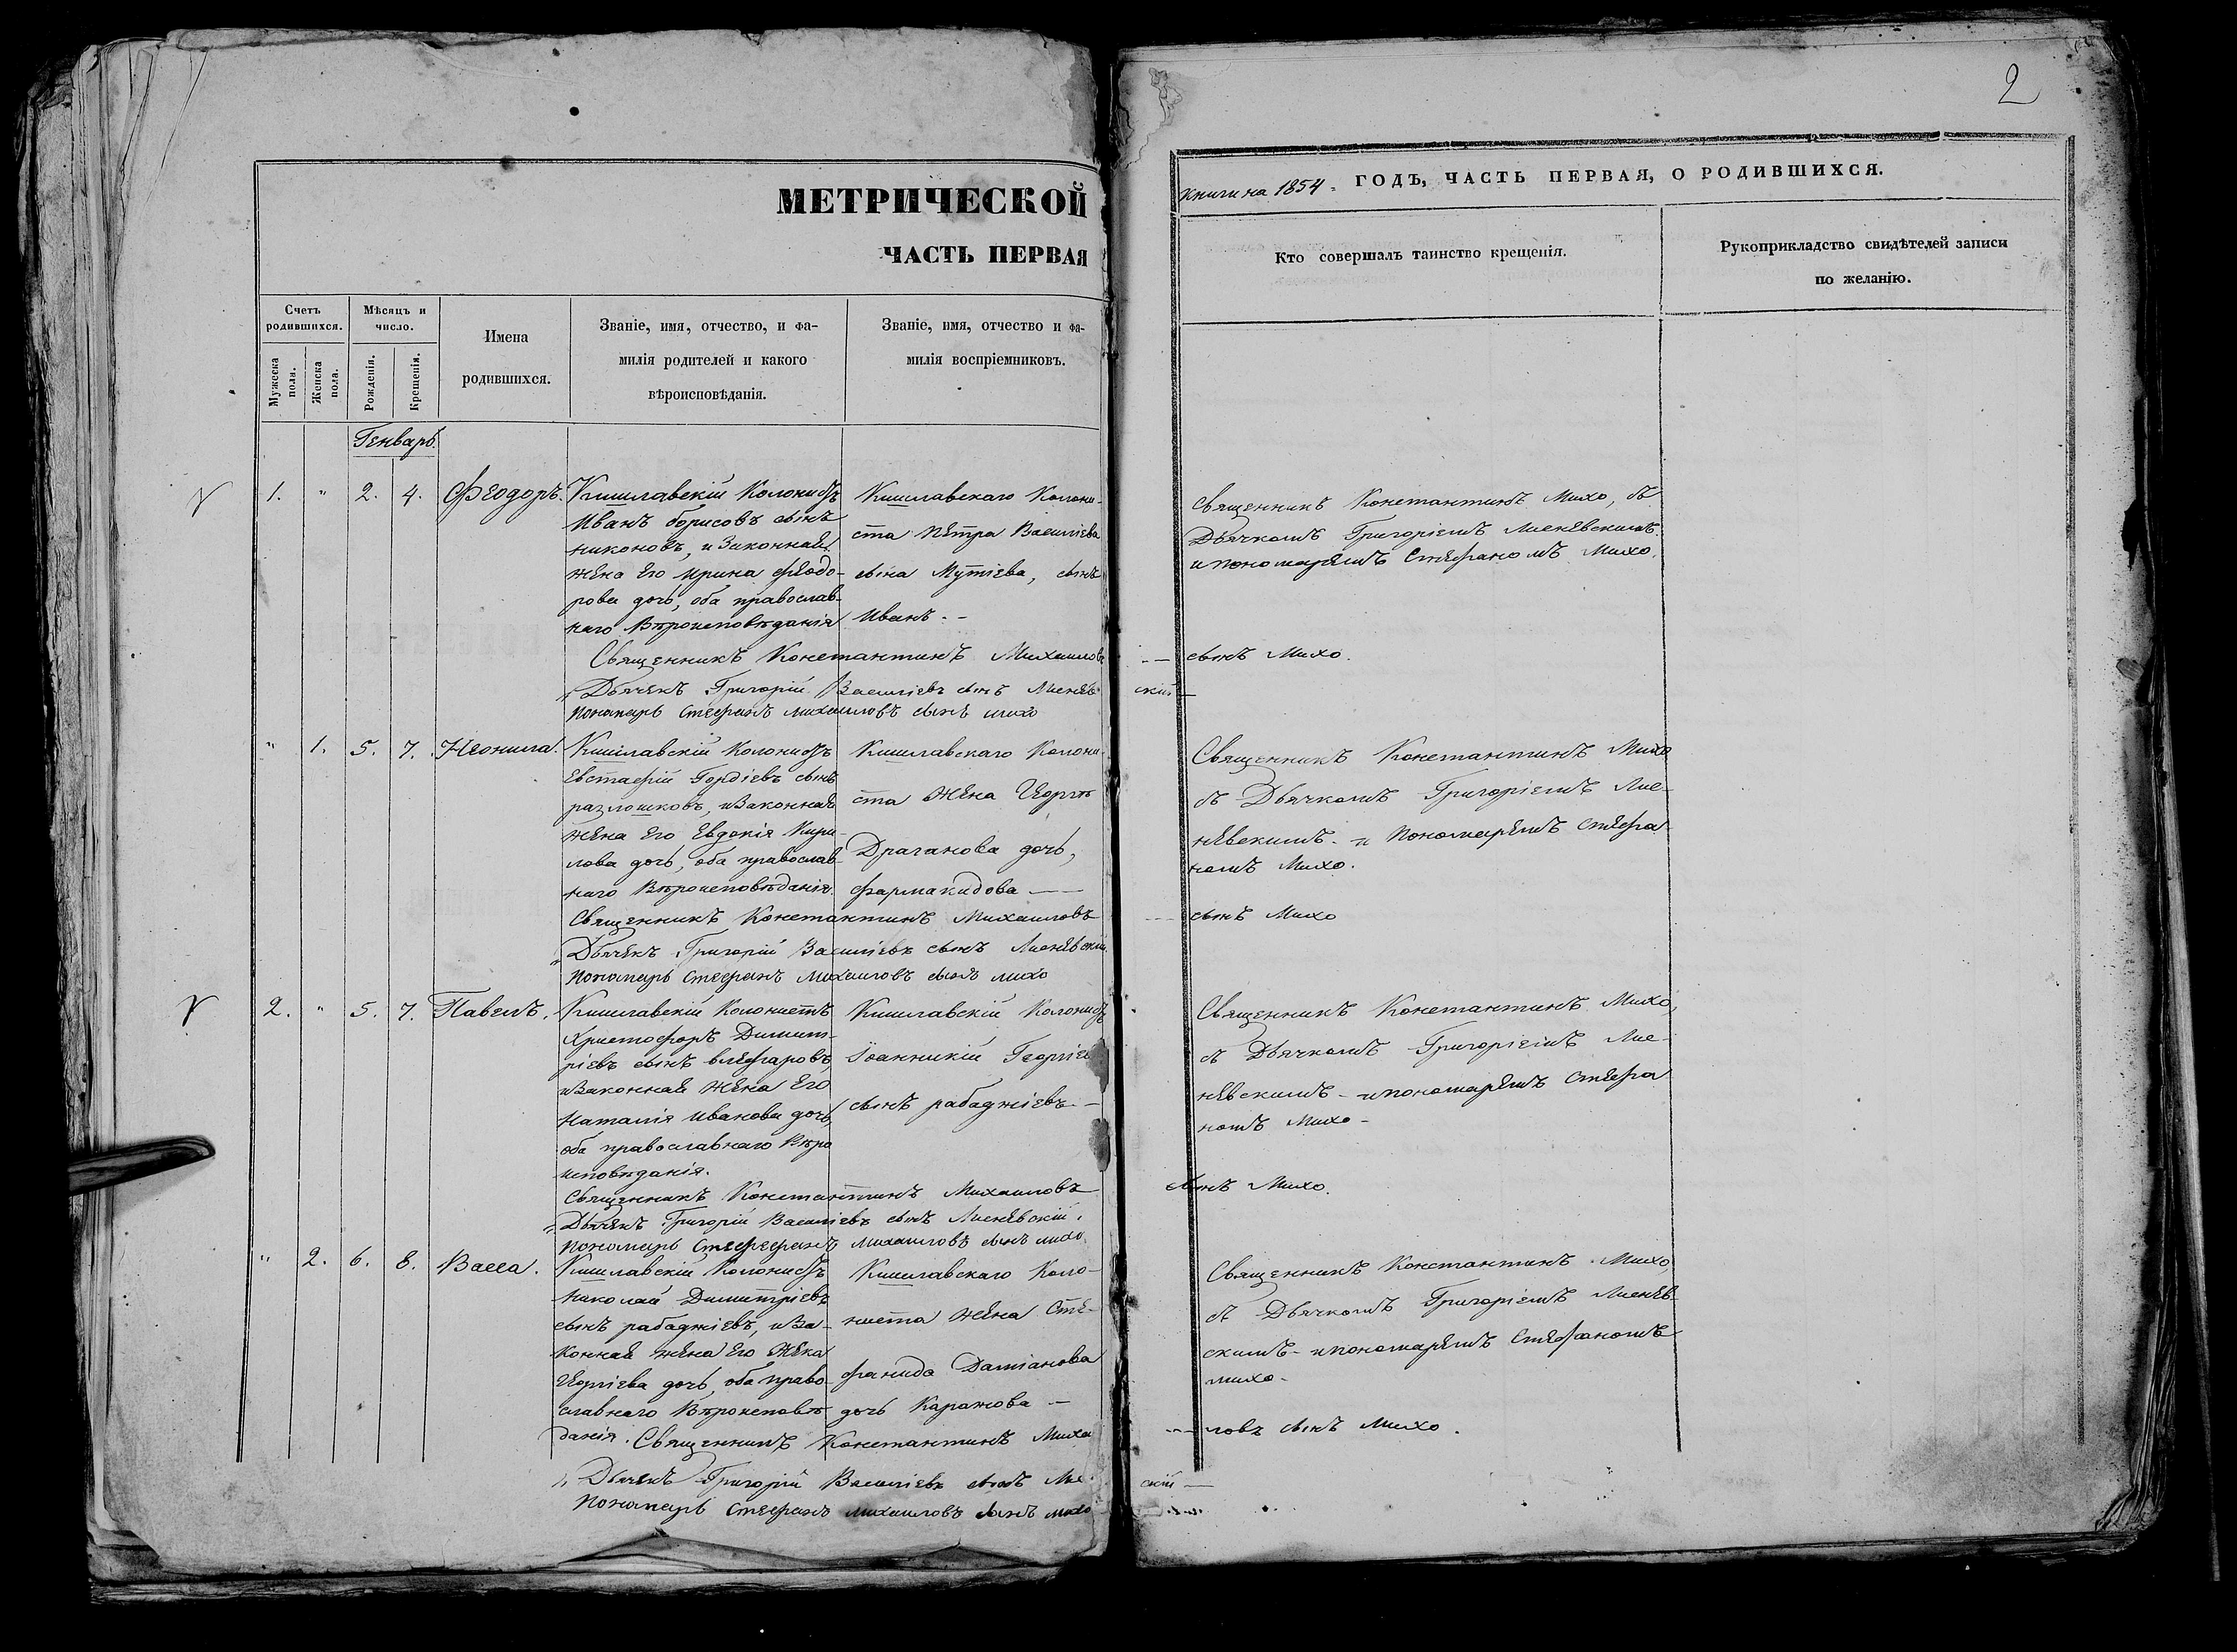 2
МЕТРИЧЕСКОЙ
ЧАСТЬ ПЕРВАЯ
Книги на 1854. ГОДЪ, ЧАСТЬ ПЕРВАЯ, О РОДИВШИХСЯ.
Счетъ родившихся.
Мужеска пола.
Женска пола.
Мѣсяцъ и число.
Рожденія.
Крещенія.
Имена
родившихся.
Званіе, имя, отчество, и фа-
милія родителей и какого
вѣроисповѣданія.
Званіе, имя, отчество и фа-
милія воспріемниковъ.
Кто совершалъ таинство крещенія.
Рукоприкладство свидѣтелей записи
по желанію.
Генварь.
1. " 2. 4. Феодоръ.
Кишлавскій Колонистъ
Иванъ борисовъ сынъ
никоновъ, и Законная
жена Его Ирина феодо-
рова дочь, оба православ-
наго Вѣроисповѣданія
Кишлавскаго Колони-
ста Петра Василіева
сына Мутіева, сынъ
Иванъ. -
Священникъ Константинъ Михо, съ
Дьячкомъ Григоріемъ Лисневскимъ
и пономаремъ Стефаномъ Михо.
Священникъ Константинъ Михаиловъ -- сынъ Михо.
Дьячекъ Григорій Василіевъ сынъ Лиснев-скій -
Пономарь Стефанъ михаиловъ сынъ михо
" 1. 5. 7. Неонила.
Кишлавскій Колонистъ
Евстафій Гордіевъ сынъ
разлошковъ, и Законная
жена Его Евдокія Кири-
лова дочь, оба православ-
наго Вѣроисповѣданія.
Кишлавскаго Колони-
ста Жена
Драганова дочь,
фармакидова --
Священникъ Константинъ Михо
съ Дьячкомъ Григоріемъ Лис-
невскимъ - и Пономаремъ Стефа
номъ Михо.
Священникъ Константинъ Михаиловъ -- сынъ Михо
Дьячекъ Григорій Василіевъ сынъ Лисневскій
Пономарь Стефанъ Михаиловъ сынъ михо
2. " 5. 7. Павелъ.
Кишлавскій Колонистъ
Христофоръ Димит-
ріевъ сынъ влефаровъ,
и Законная жена Его
Наталія Иванова дочь,
оба православнаго Вѣро
исповѣданія.
Кишлавскій Колонистъ
Іоанникій Георгіев
сынъ рабаджіевъ. -
Священникъ Константинъ Михо,
съ Дьячкомъ Григоріемъ Лис-
невскимъ - и пономаремъ Стефа
номъ Михо -
Священникъ Константинъ Михаиловъ сынъ Михо.
Дьячекъ Григорій Василіевъ сынъ Лисневскій.
Пономарь Стефефанъ михаиловъ сынъ михо.
" 2. 6. 8. Васса.
Кишлавскій Колонистъ
Николай Димитріевъ
сынъ рабаджіевъ, и За-
конная жена Его
Георгіева дочь, оба право-
славнаго Вѣроисповѣ
данія.
Кишлавскаго Коло-
ниста жена Сте-
фанида Даміанова
дочь Каражова -
Священникъ Константинъ Михо,
съ Дьячкомъ Григоріемъ Лиснев-
скимъ - и пономаремъ Стефаномъ
михо -
Священникъ Константинъ Михаи -- ловъ сынъ Михо.
Дьячекъ Григорій Василіевъ сынъ Лис скій -
Пономарь Стефанъ михаиловъ сынъ михо